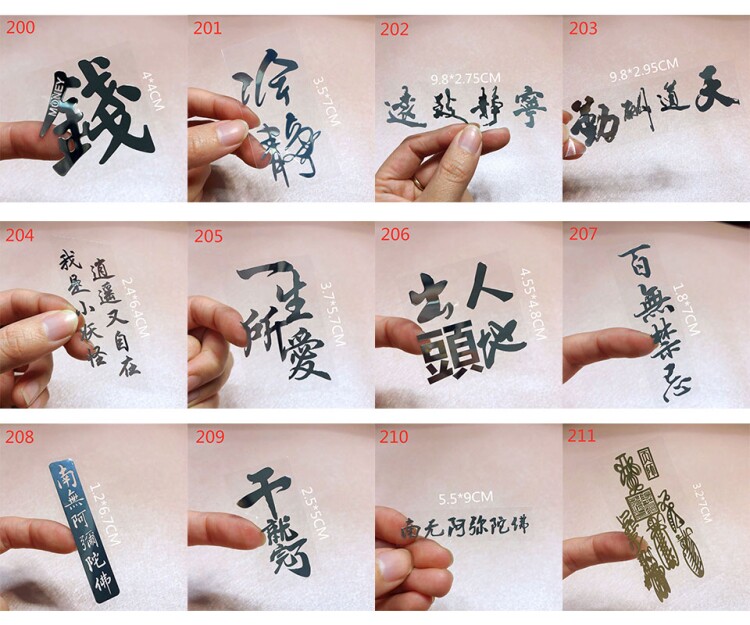 200
錢
MONEY
4*4CM
201
冷
靜
3.5*7CM
202
9.8*2.75CM
寧靜致遠
203
9.8*2.95CM
天道酬勤
204
我是小妖怪
逍遥又自在
2.4*6.4CM
205
一生
所愛
3.7*5.7CM
206
出人
頭地
4.55*4.8CM
207
百無禁忌
1.8*7CM
208
南無阿彌陀佛
1.2*6.7CM
209
干就完了
2.5*5CM
210
5.5*9CM
南无阿弥陀佛
211
3.2*7CM